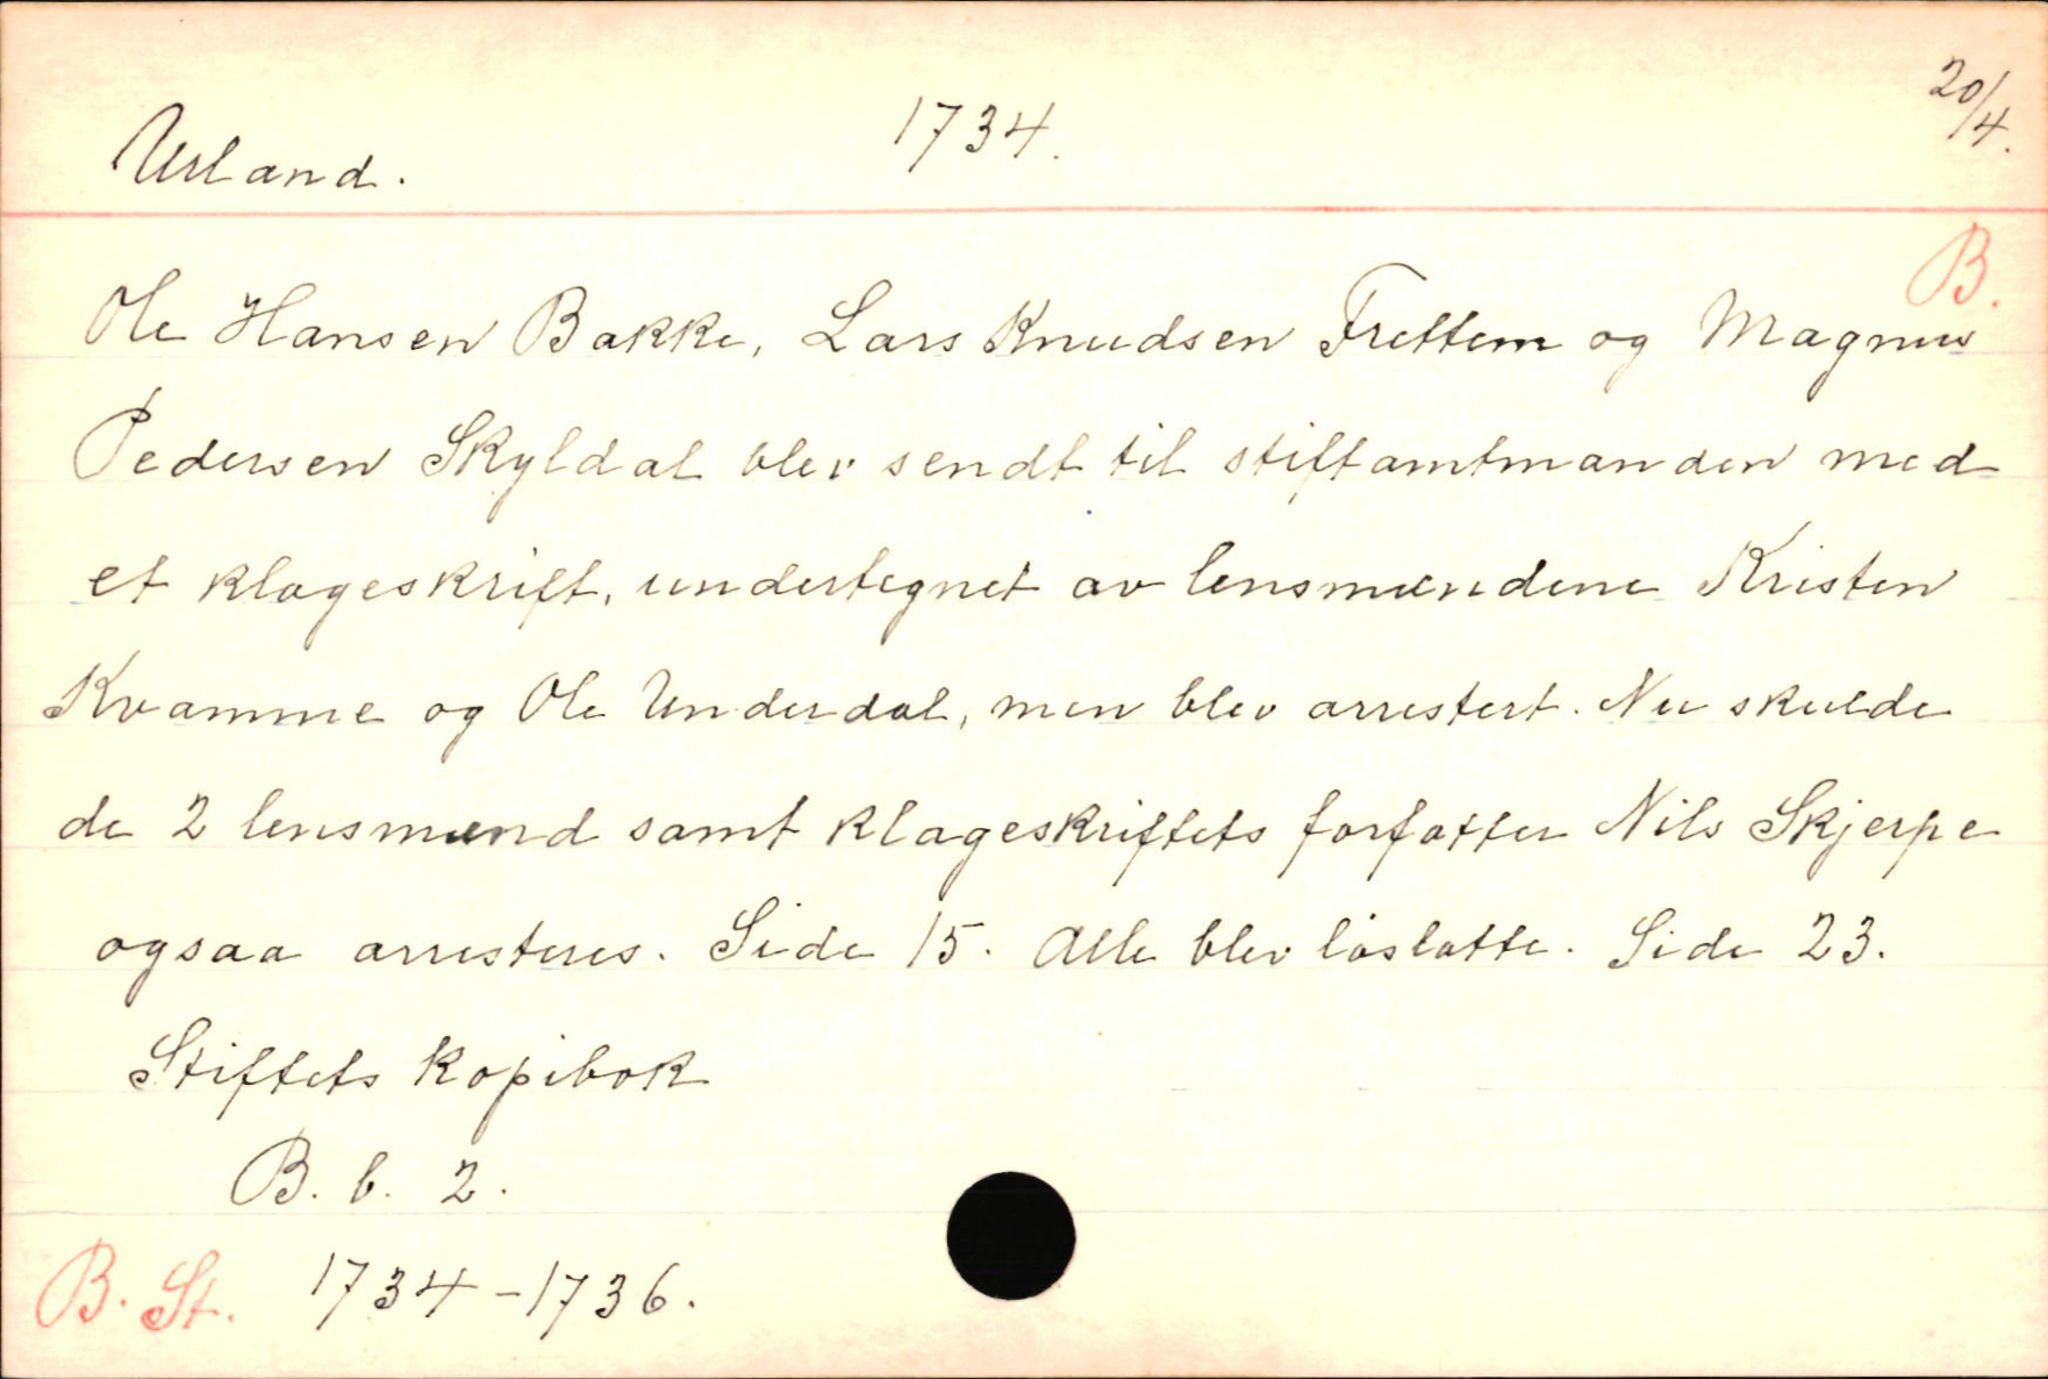 Urland.
1734.
20/4.
B.
Ole Hansen Bakke, Lars Knudsen Frettem og Magnus
Pedersen Skyldal blev sendt til stiftamtmanden med
et klageskrift, undertegnet av lensmændene Kristen
Kvamme og Ole Underdal, men blev arrestert. Nu skulde
de 2 lensmænd samt klageskriftets forfatter Nils Skjerpe
ogsaa arresteres. Side 15. Alle blev löslatte. Side 23.
Stiftets kopibok
B. b. 2.
B. St. 1734-1736.